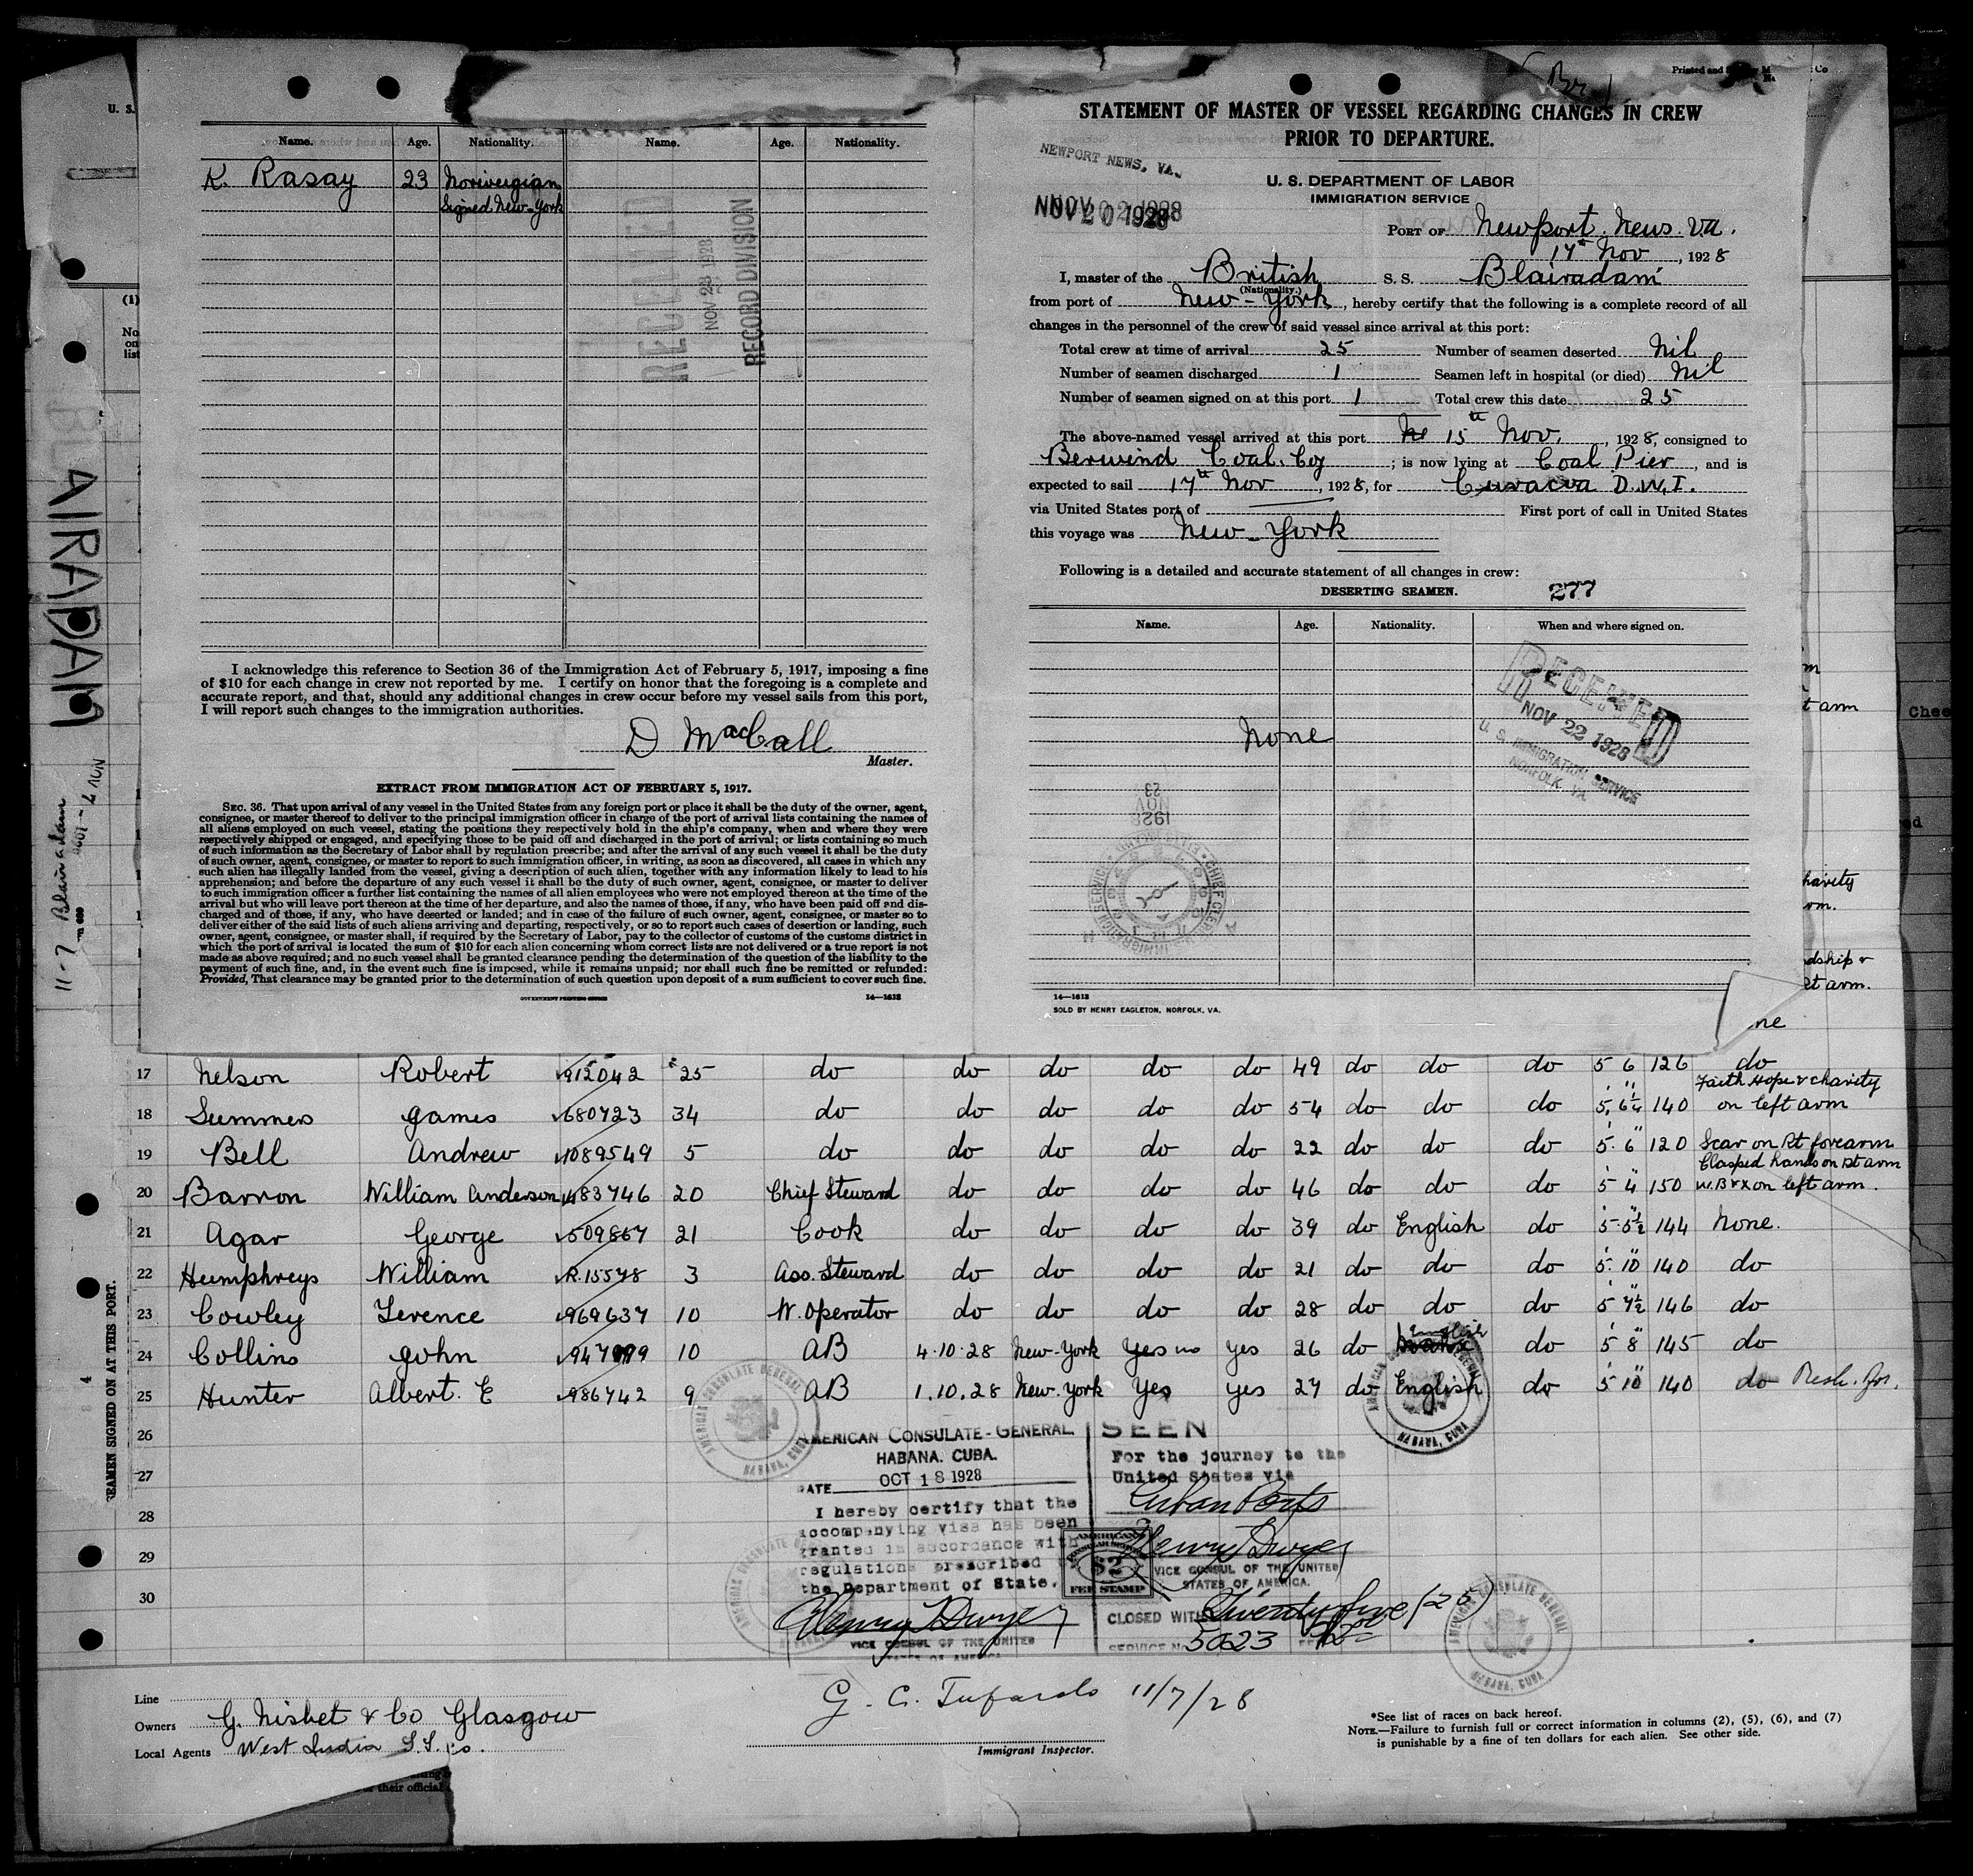 Name. Age. Nationality. Name. Age. Nationality.
K. Rasay 23 Norwegian
Signed New-York
RECEIVED
NOV 28 1928
RECORD DIVISION
I acknowledge this reference to Section 36 of the Immigration Act of February 5, 1917, imposing a fine
of $10 for each change in crew not reported by me. I certify on honor that the foregoing is a complete and
accurate report, and that, should any additional changes in crew occur before my vessel sails from this port,
I will report such changes to the immigration authorities.
D MacCall
Master.
EXTRACT FROM IMMIGRATION ACT OF FEBRUARY 5, 1917.
SEC. 36. That upon arrival of any vessel in the United States from any foreign port or place it shall be the duty of the owner, agent,
consignee, or master thereof to deliver to the principal immigration officer in charge of the port of arrival lists containing the names of
all aliens employed on such vessel, stating the positions they respectively hold in the ship's company, when and where they were
respectively shipped or engaged, and specifying those to be paid off and discharged in the port of arrival; or lists containing so much
of such information as the Secretary of Labor shall by regulation prescribe; and after the arrival of any such vessel it shall be the duty
of such owner, agent, consignee, or master to report to such immigration officer, in writing, as soon as discovered, all cases in which any
such alien has illegally landed from the vessel, giving a description of such alien, together with any information likely to lead to his
apprehension; and before the departure of any such vessel it shall be the duty of such owner, agent, consignee, or master to deliver
to such immigration officer a further list containing the names of all alien employees who were not employed thereon at the time of the
arrival but who will leave port thereon at the time of her departure, and also the names of those, if any, who have been paid off and dis-
charged and of those, if any, who have deserted or landed; and in case of the failure of such owner, agent, consignee, or master so to
deliver either of the said lists of such aliens arriving and departing, respectively, or so to report such cases of desertion or landing, such
owner, agent, consignee, or master shall, if required by the Secretary of Labor, pay to the collector of customs of the customs district in
which the port of arrival is located the sum of $10 for each alien concerning whom correct lists are not delivered or a true report is not
made as above required; and no such vessel shall be granted clearance pending the determination of the question of the liability to the
payment of such fine, and, in the event such fine is imposed, while it remains unpaid; nor shall such fine be remitted or refunded:
Provided, That clearance may be granted prior to the determination of such question upon deposit of a sum sufficient to cover such fine.
GOVERNMENT PRINTING OFFICE 14—1612
STATEMENT OF MASTER OF VESSEL REGARDING CHANGES IN CREW
PRIOR TO DEPARTURE.
NEWPORT NEWS, VA.
NOV 20 1928
U. S. DEPARTMENT OF LABOR
IMMIGRATION SERVICE
PORT OF Newport. News. Va.
17th Nov, 1928
I, master of the British S. S. Blairadam
(Nationality.)
from port of New-York, hereby certify that the following is a complete record of all
changes in the personnel of the crew of said vessel since arrival at this port:
Total crew at time of arrival 25 Number of seamen deserted Nil
Number of seamen discharged 1 Seamen left in hospital (or died) Nil
Number of seamen signed on at this port 1 Total crew this date 25
The above-named vessel arrived at this port 15th Nov., 1928, consigned to
Berwind Coal. Coy; is now lying at Coal Pier, and is
expected to sail 17th Nov, 1928, for Curacoa D.W.I.
via United States port of First port of call in United States
this voyage was New-York
Following is a detailed and accurate statement of all changes in crew:
DESERTING SEAMEN. 277
Name. Age. Nationality. When and where signed on.
RECEIVED
NOV 22 1928
U. S. IMMIGRATION SERVICE
NORFOLK, VA
None
1928
NOV
23
14—1612
SOLD BY HENRY EAGLETON, NORFOLK, VA.
BLAIRADAM
11-7 Blairadam
SEAMEN SIGNED ON AT THIS PORT.
17 Nelson Robert 912042 25 do do do do do 49 do do do 5 6 126 do
18 Summers James 680723 34 do do do do do 54 do do do 5 6¼ 140 Faith Hope & Charity
on left arm
19 Bell Andrew 1089549 5 do do do do do 22 do do do 5 6 120 Scar on Rt forearm
20 Barron William Anderson 483746 20 Chief Steward do do do do 46 do do do 5 4 150 Clasped hands on Rt arm
W.B & X on left arm.
21 Agar George 509867 21 Cook do do do do 39 do English do 5 5½ 144 None.
22 Humphreys William R.15578 3 Ass. Steward do do do do 21 do do do 5 10 140 do
23 Cowley Terence 969637 10 W. Operator do do do do 28 do do do 5 7½ 146 do
24 Collins John 10 AB 4.10.28 New-York Yes no yes 26 do English do 5 8 145 do
25 Hunter Albert. E 986742 9 AB 1.10.28 New. York Yes yes 27 do English do 5 10 140 do
26
27
28
29
30
AMERICAN CONSULATE-GENERAL.
HABANA. CUBA.
DATE OCT 18 1928
I hereby certify that the
accompanying visa has been
granted in accordance with
regulations prescribed
the Department of State.
Henry T Dwyer
VICE CONSUL OF THE UNITED
STATES OF AMERICA
SEEN
For the journey to the
United States via
Cuban Ports
Henry T Dwyer
VICE CONSUL OF THE UNITED
STATES OF AMERICA.
AMERICAN CONSULAR SERVICE $2 FEE STAMP
CLOSED WITH Twenty five (25)
SERVICE No 5023
AMERICAN CONSULATE GENERAL HABANA, CUBA
Line
Owners G. Nisbet & Co Glasgow
Local Agents West India S.S. Co.
11/7/28
Immigrant Inspector.
*See list of races on back hereof.
NOTE.—Failure to furnish full or correct information in columns (2), (5), (6), and (7)
is punishable by a fine of ten dollars for each alien. See other side.